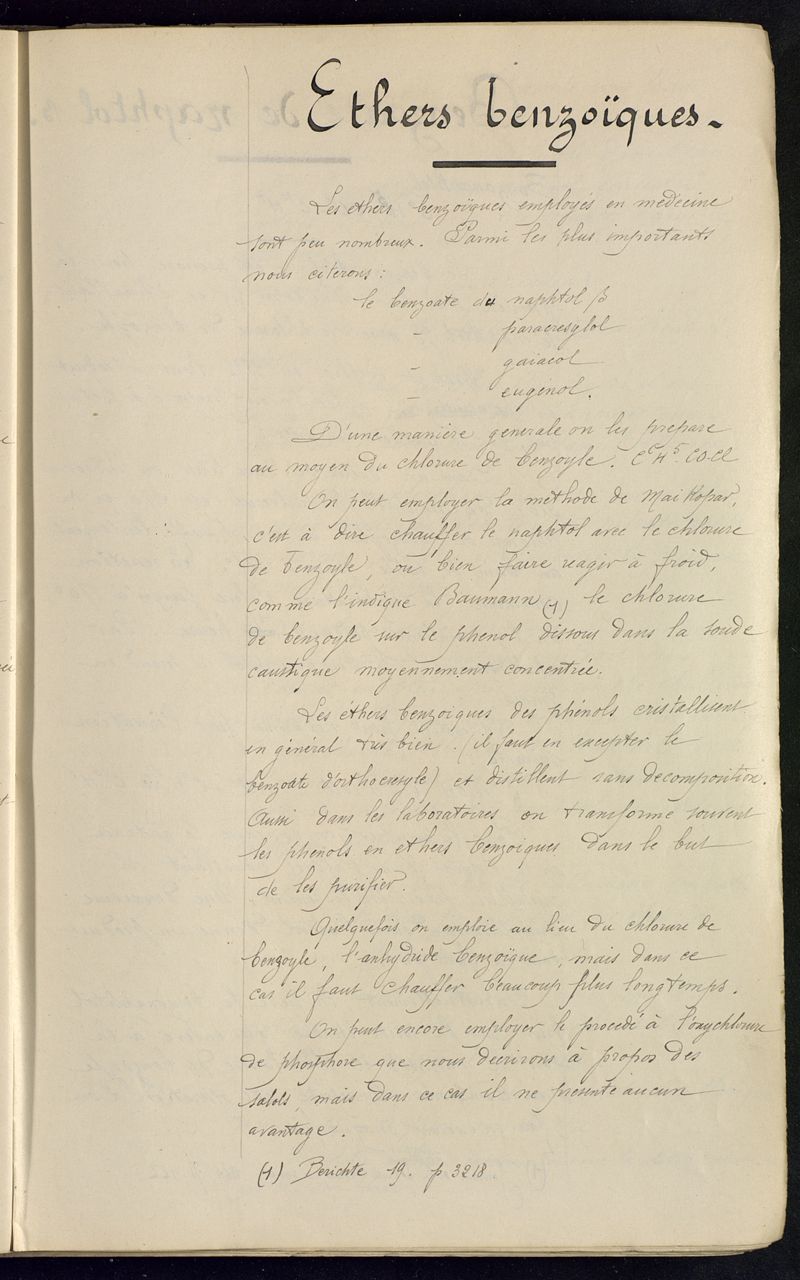 Ethers benzoïques.
Les ethers benzoïques employés en medecine
sont peu nombreux. Parmi les plus importants
nous citerons :
le benzoate de naphtol β
- paracresylol
- gaiacol
- eugénol.
D'une manière generale on les prepare
au moyen du chlorure de benzoyle. C⁶H⁵-CO-Cl
On peut employer la méthode de Maikopar,
c'est à dire chauffer le naphtol avec le chlorure
de benzoyle, ou bien faire reagir à froid,
comme l'indique Baumann (1) le chlorure
de benzoyle sur le phenol dissous dans la soude
caustique moyennement concentrée.
Les éthers benzoiques des phénols cristallisent
en général très bien. (il faut en excepter le
benzoate d'orthocresyle) et distillent sans decomposition.
Aussi dans les laboratoires on transforme souvent
les phenols en ethers benzoiques dans le but
de les purifier.
Quelquefois on emploie au lieu du chlorure de
benzoyle, l'anhydride benzoïque, mais dans ce
cas il faut chauffer beaucoup plus longtemps.
On peut encore employer le procedé à l'oxychlorure
de phosphore que nous decrirons à propos des
salols, mais dans ce cas il ne presente aucun
avantage.
(1) Berichte 19. p 3218.